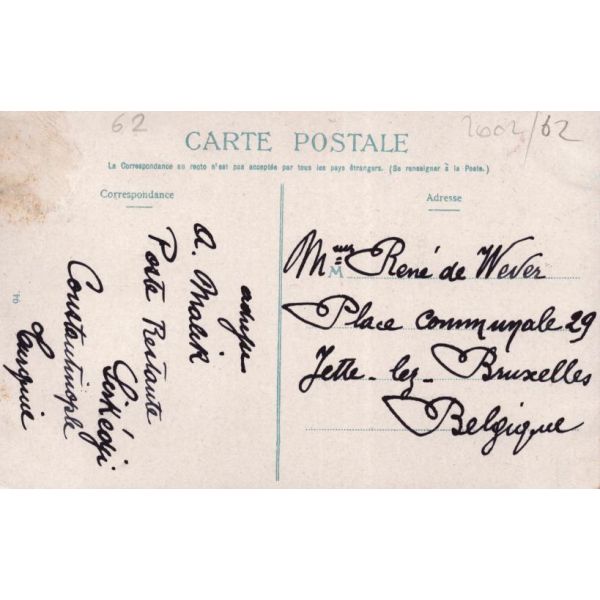 62
2602/62
CARTE POSTALE
La Correspondance au recto n'est pas acceptée par tous les pays étrangers. (Se renseigner à la Poste.)
Correspondance
Adresse
A. Malek
Poste Restante
Sirkédji
Constantinople
Turquie
94
M
Meur René de Wever
Place Communale 29
Jette-lez-Bruxelles
Belgique